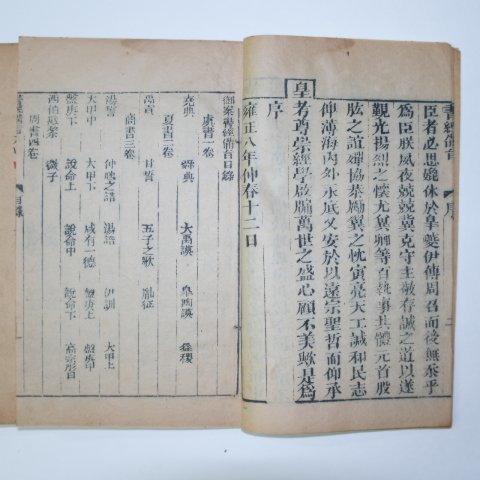 書經備旨 序 二
臣者必思媲休於皐夔伊傅周召而後無忝乎
為臣朕夙夜兢兢克守主敬存誠之道以遂
觀光揚烈之懷尤冀卿等百執事具體元首股
肱之誼殫協恭勵翼之忱寅亮天工諴和民志
俾溥海內外永底乂安於以遠宗聖哲而仰承
皇考尊崇經學啟牖萬世之盛心顧不美歟是為
序
雍正八年仲春十二日
御案書經備旨目錄
虞書一卷
堯典 舜典 大禹謨 皐陶謨 益稷
夏書二卷
禹貢 甘誓 五子之歌 胤征
商書三卷
湯誓 仲虺之誥 湯誥 伊訓 大甲上
大甲中 大甲下 咸有一德 盤庚上 盤庚中
盤庚下 說命上 說命中 說命下 高宗肜日
西伯戡黎 微子
周書四卷
目錄